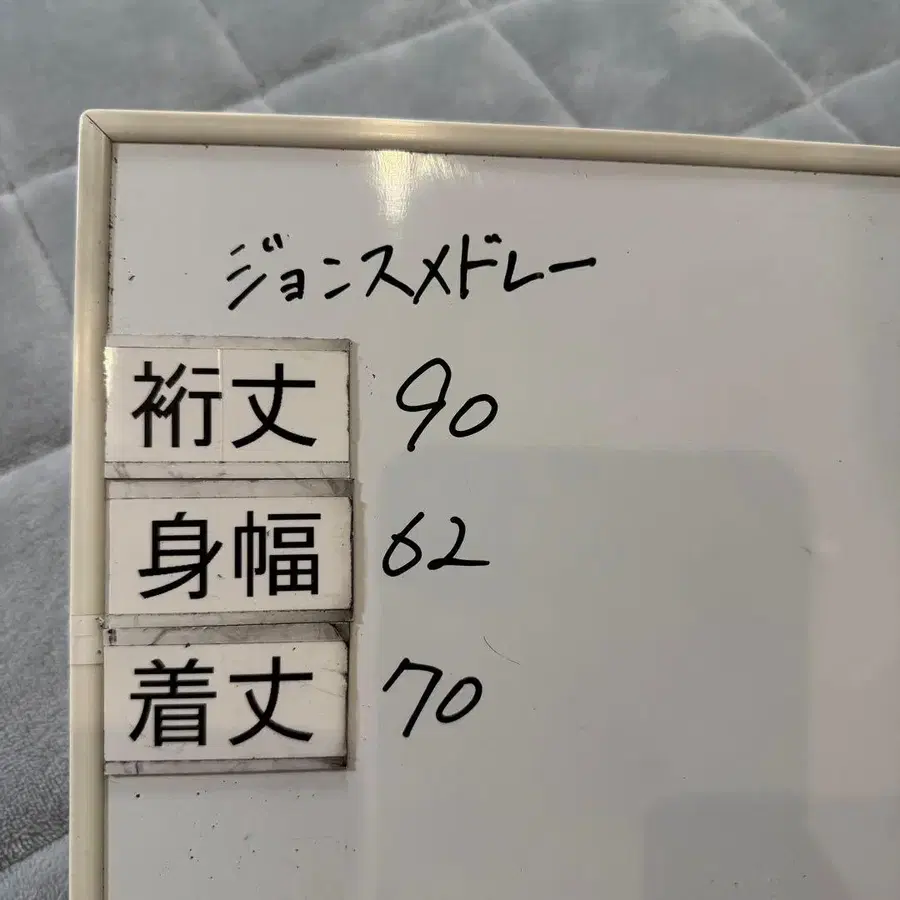 ジョンスメドレー
裄丈 90
身幅 62
着丈 70